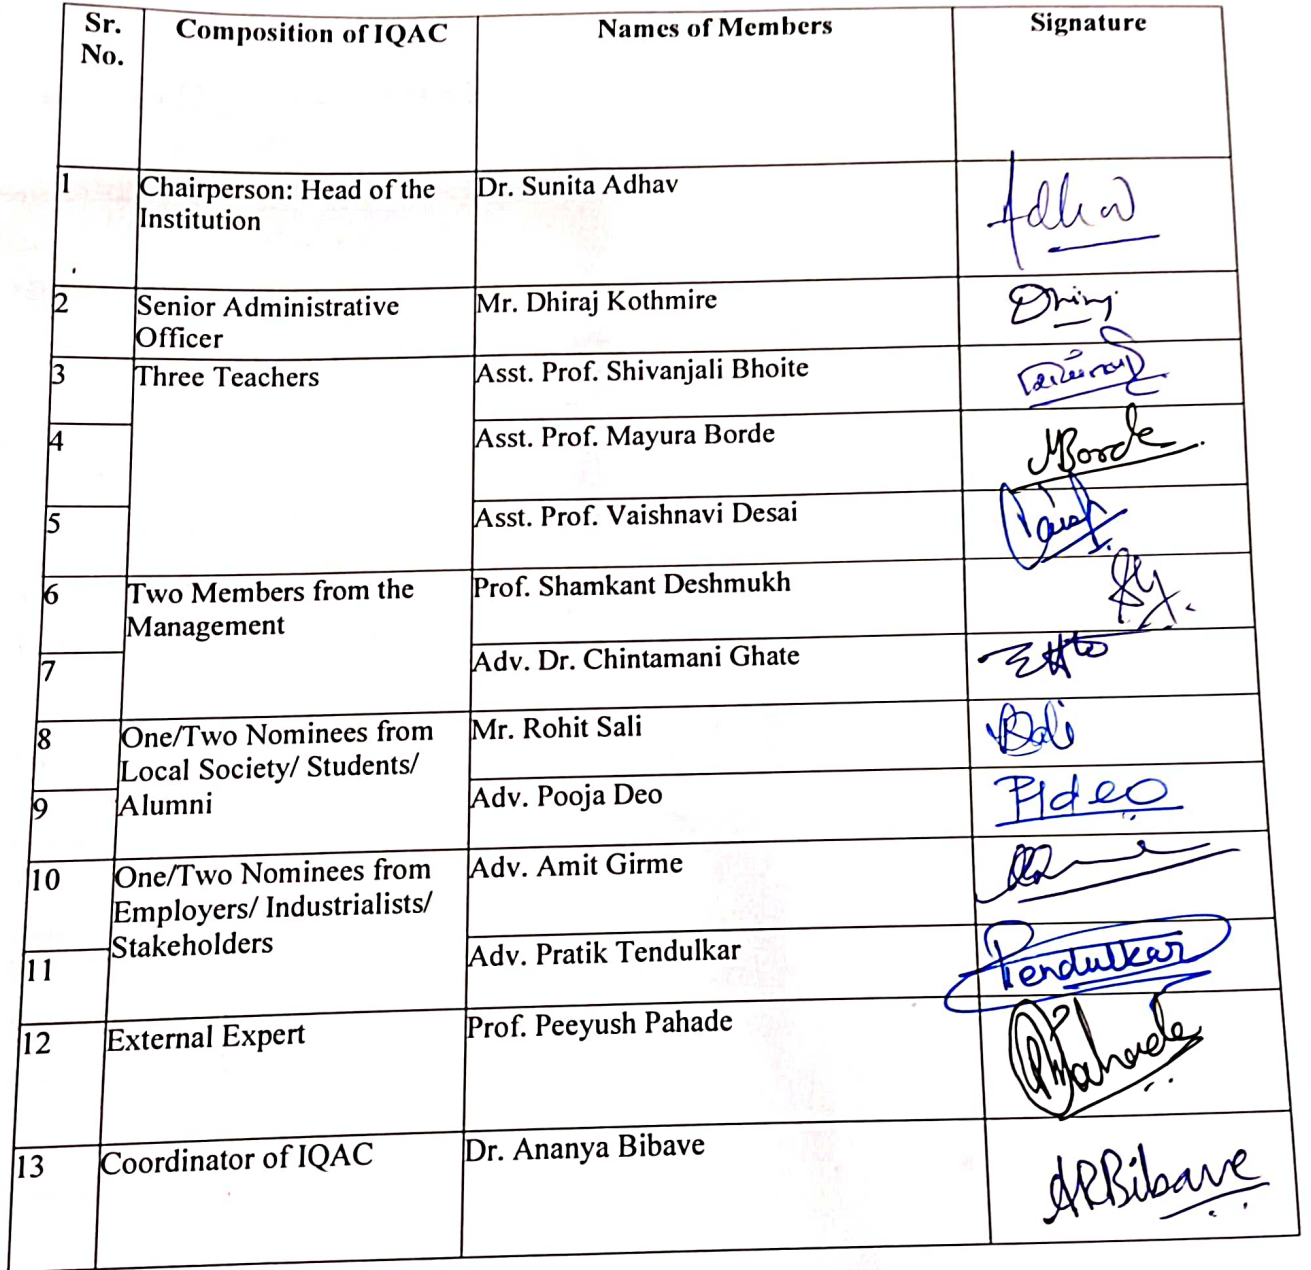 Sr. No.
Composition of IQAC
Names of Members
Signature
1
Chairperson: Head of the
Institution
Dr. Sunita Adhav
Adhav
2
Senior Administrative
Officer
Mr. Dhiraj Kothmire
3
Three Teachers
Asst. Prof. Shivanjali Bhoite
4
Asst. Prof. Mayura Borde
MBorde
5
Asst. Prof. Vaishnavi Desai
6
Two Members from the
Management
Prof. Shamkant Deshmukh
7
Adv. Dr. Chintamani Ghate
8
One/Two Nominees from
Local Society/ Students/
Alumni
Mr. Rohit Sali
9
Adv. Pooja Deo
PJdeo
10
One/Two Nominees from
Employers/ Industrialists/
Stakeholders
Adv. Amit Girme
11
Adv. Pratik Tendulkar
Tendulkar
12
External Expert
Prof. Peeyush Pahade
Pahade
13
Coordinator of IQAC
Dr. Ananya Bibave
ARBibave